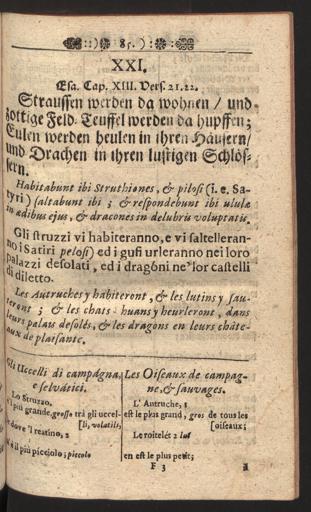 ::) 85. ) ::
XXI.
Esa. Cap. XIII. Vers. 21. 22.
Straussen werden da wohnen / und
zottige Feld-Teuffel werden da hupffen;
Eulen werden heulen in ihren Häusern /
und Drachen in ihren lustigen Schlös-
sern.
Habitabunt ibi Struthiones, & pilosi (i. e. Sa-
tyri) saltabunt ibi ; & respondebunt ibi ululæ
in ædibus ejus, & dracones in delubris voluptatis.
Gli struzzi vi habiteranno, e vi saltelleran-
no i Satiri pelosi) ed i gufi urleranno nei loro
palazzi desolati, ed i dragóni ne'lor castelli
di diletto.
Les Autruches y habiteront, & les lutins y sau-
teront ; & les chats-huans y heurleront, dans
leurs palais desolés, & les dragons en leurs châte-
aux de plaisante.
Gli Uccelli di campágna,
e selvátici.
Lo Struzzo.
è'l più grande, grosso trà gli uccel-
[li, volatili,
dove 'l reatino, 2
è il più picciolo ; piccolo
Les Oiseaux de campag-
ne, & sauvages.
L' Autruche, 1
est le plus grand, gros de tous les
[oiseaux ;
Le roitelét 2 lui
en est le plus petit ;
F 3